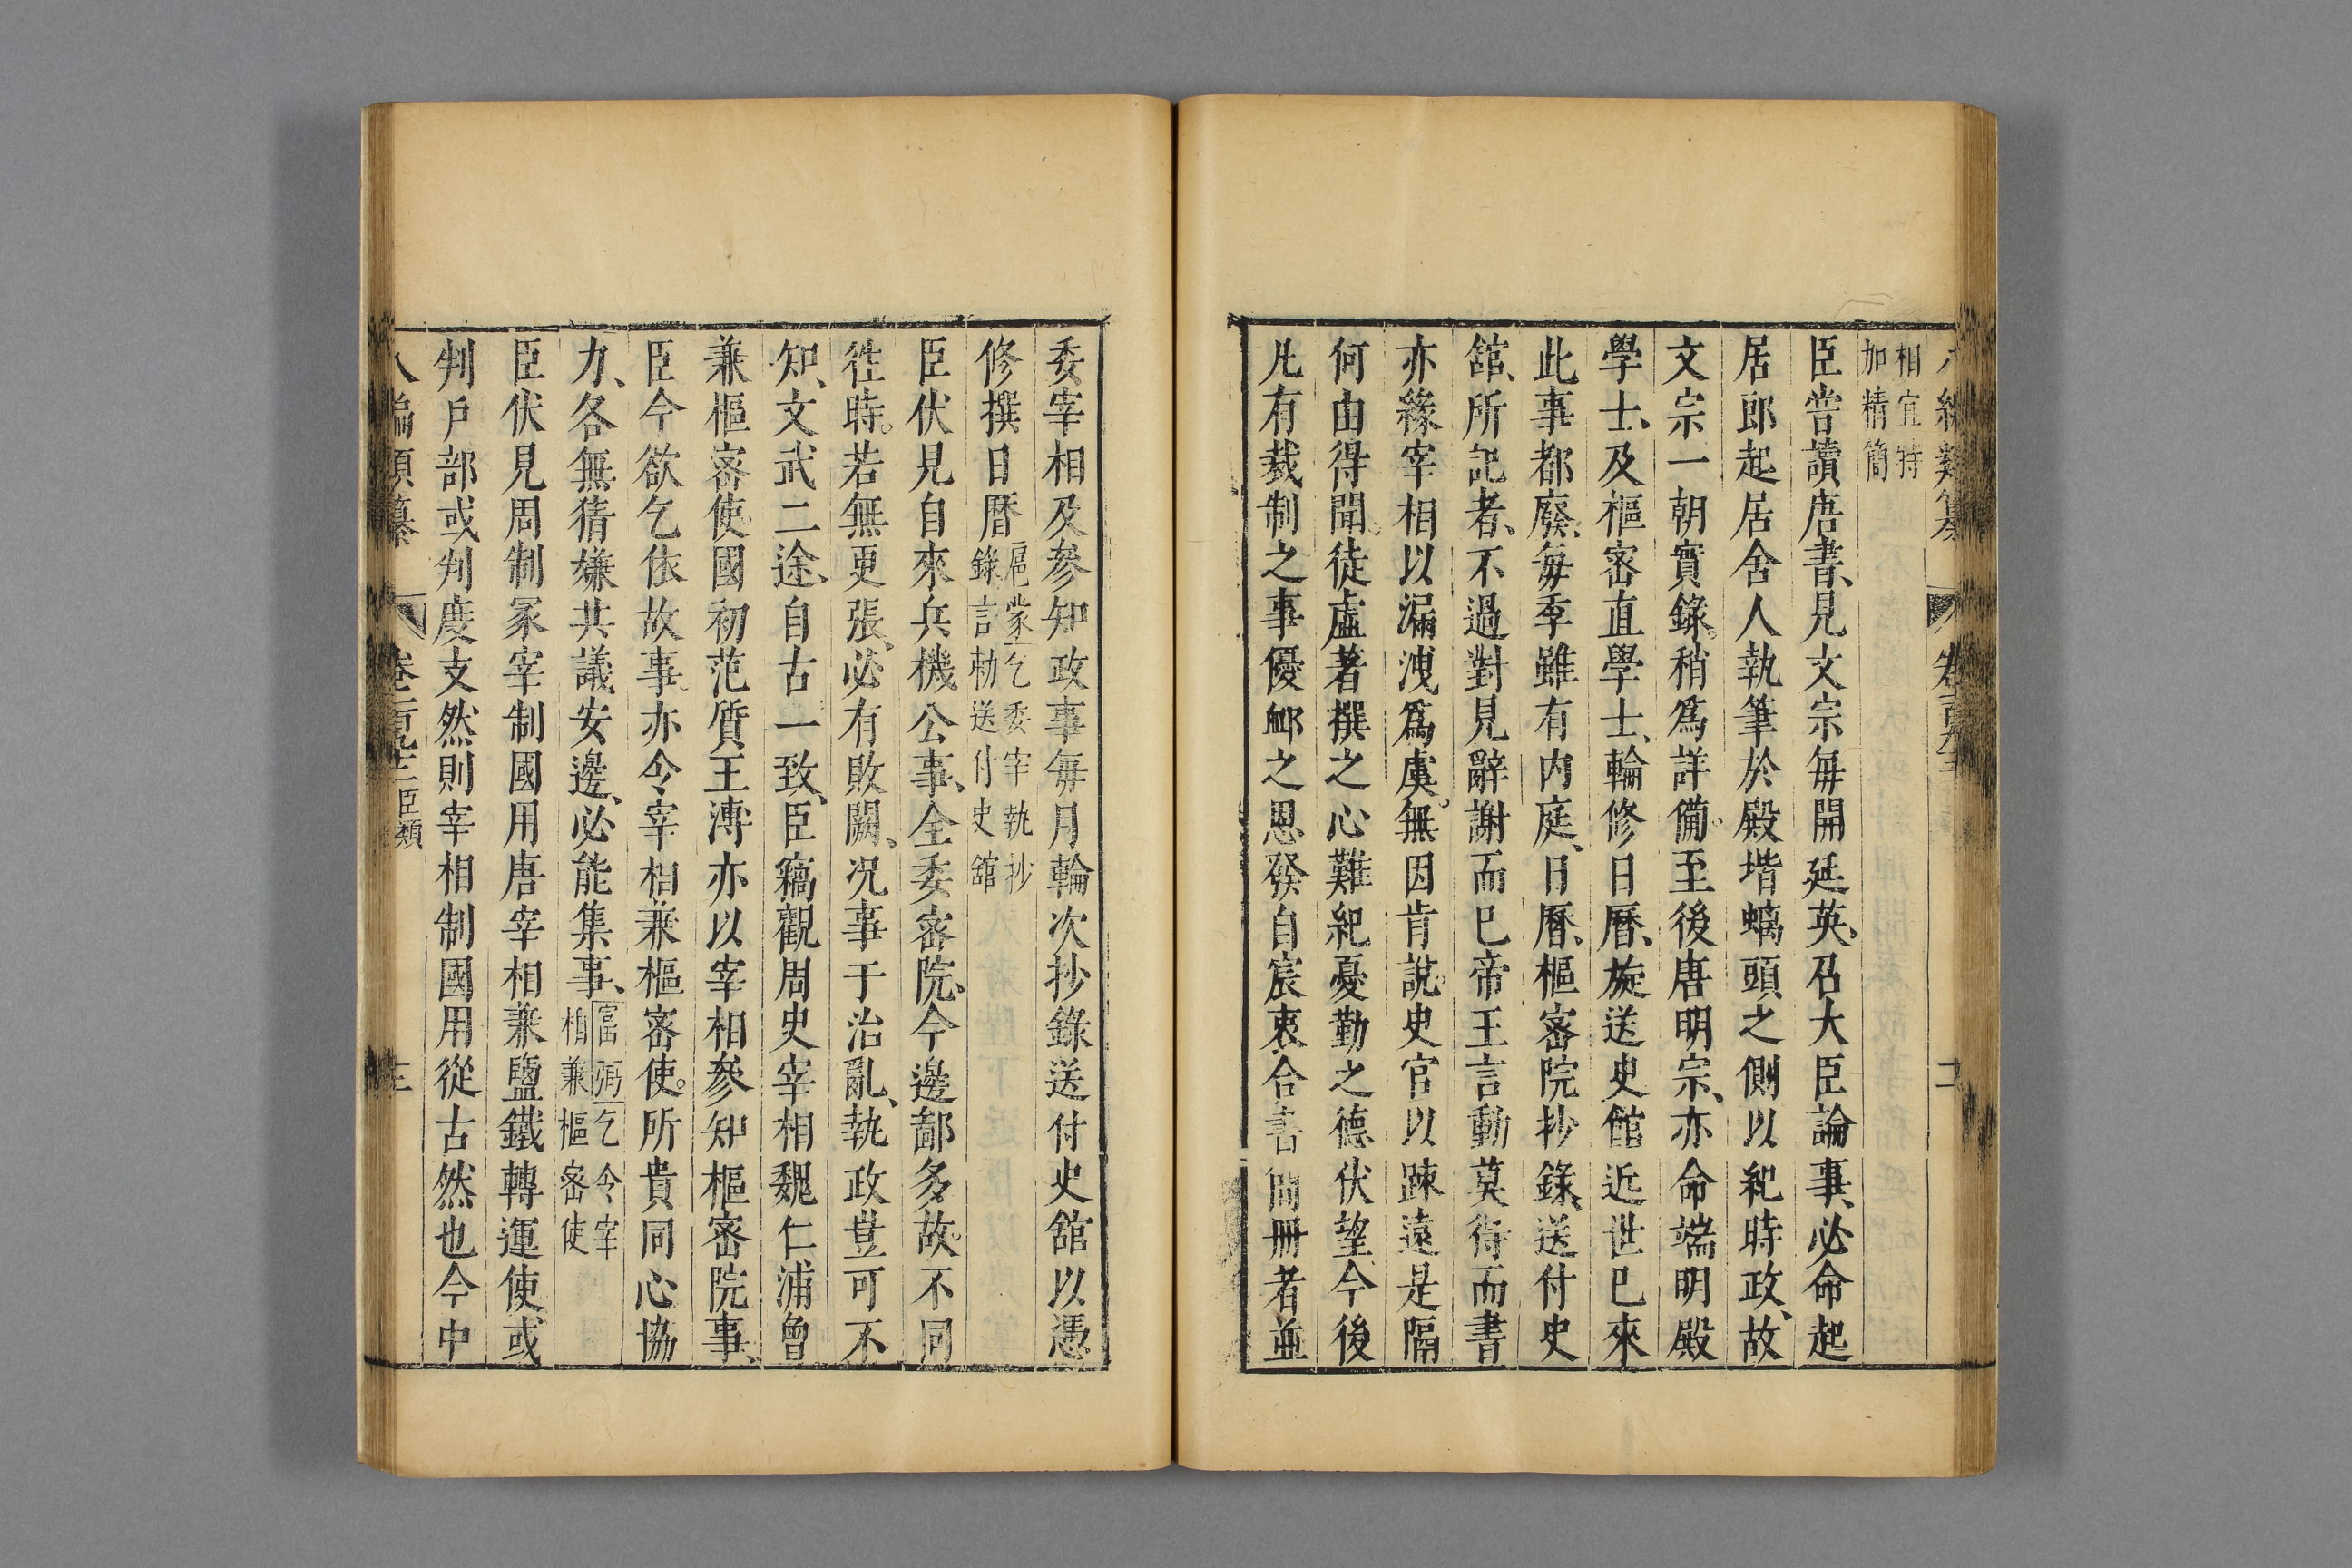 相宜特
加精簡
臣嘗讀唐書、見文宗每開延英、召大臣論事、必命起
居郎起居舍人執筆於殿堦螭頭之側以紀時政、故
文宗一朝實錄。稍爲詳備。至後唐明宗、亦命端明殿
學士、及樞密直學士、輪修日曆、旋送史館近世已來
此事都廢、每季雖有內庭、日曆、樞密院抄錄、送付史
館、所記者、不過對見辭謝而已帝王言動莫得而書
亦緣宰相以漏洩爲虞。無因肯說。史官以踈遠是隔
何由得聞。徒虛著撰之心難紀憂勤之德伏望今後
凡有裁制之事優衈之恩發自宸衷合書簡册者並
委宰相及參知政事每月輪次抄錄送付史館以憑
修撰日曆扈蒙乞委宰執抄
錄言勅送付史館
臣伏見自來兵機公事、全委密院、今邊鄙多故。不同
徃時。若無更張、必有敗闕、况事于治亂、執政豈可不
知、文武二途、自古一致、臣竊觀周史宰相魏仁浦曾
兼樞密使。國初范質王溥亦以宰相參知樞密院事、
臣今欲乞依故事。亦令宰相兼樞密使。所貴同心協
力、各無猜嫌共議安邊、必能集事、富弼乞令宰
相兼樞密使
臣伏見周制冢宰制國用唐宰相兼鹽鐵轉運使、或
判戶部或判度支然則宰相制國用從古然也今中
八編類纂 卷二百九十三 臣類 三